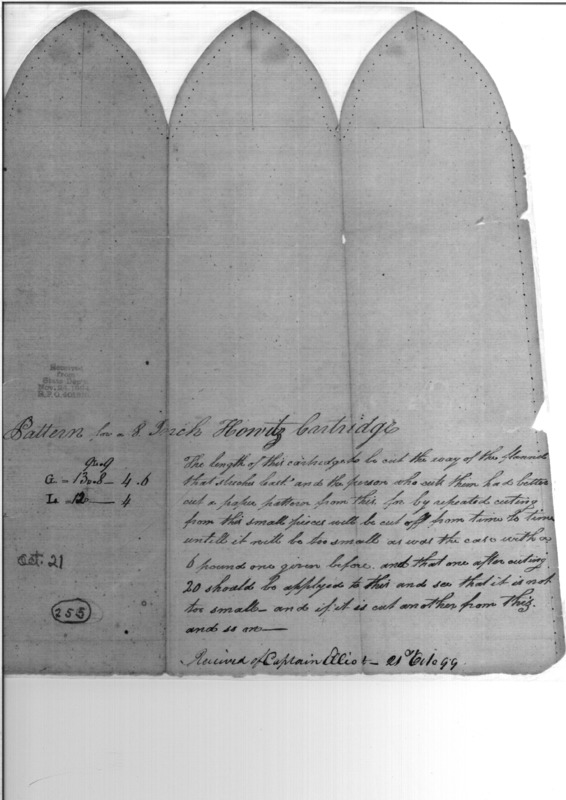 Removed
from
State Dep't
Pattern for a 8 Inch Howitz Cartridge
G
13.8 — 4.6
L
12 — 4
Oct. 21
255
The length of this cartridge to be cut the way of the flannel
that streches least and the person who cuts them had better
cut a paper pattern from this for by repeated cutting
from this small pieces will be cut off from time to time
untill it will be too small as was the case with a
6 pound one given before and that one after cutting
20 should be applyed to this and see that it is not
too small and if it is cut another from this
and so on —
Received of Captain Elliot — 21st Octo 99